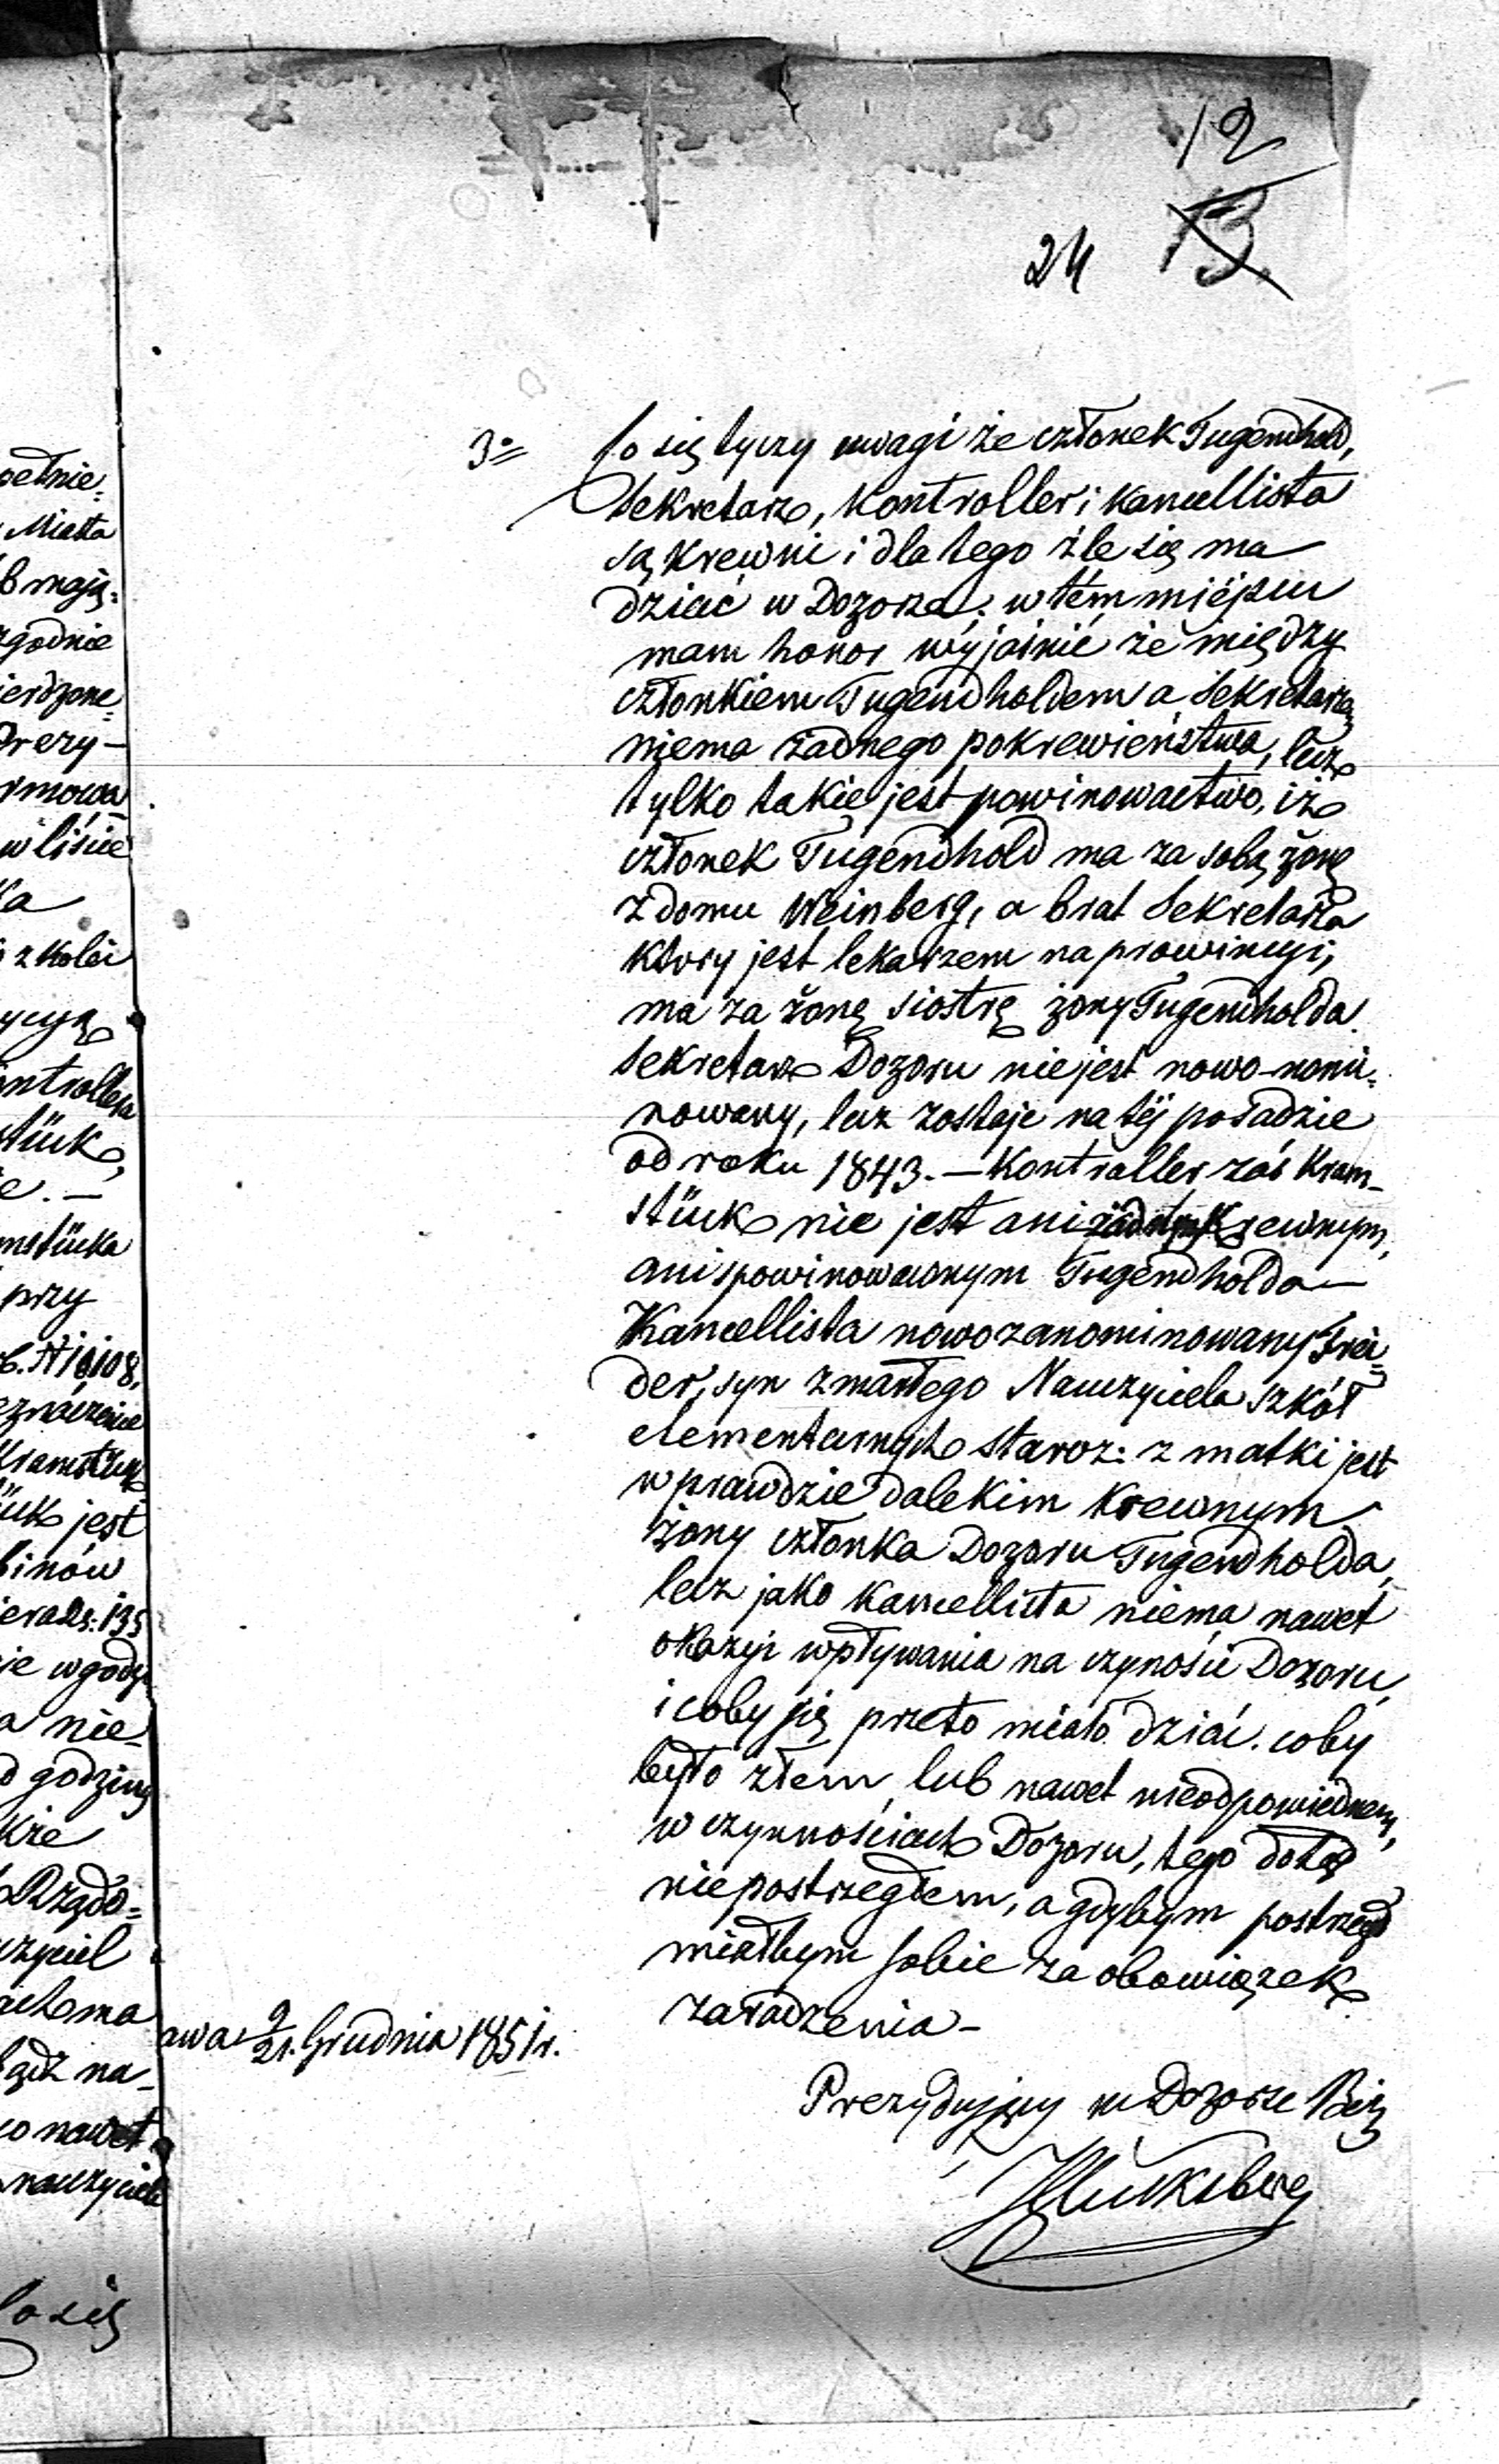 12
24 13.
3o Co się tyczy uwagi że członek Tugendhold,
Sekretarz, Kontroller i Kancellista
są krewni i dla tego źle się ma
dziać w Dozorze; w tém miéjscu
mam honor wyjaśnić że między
członkiem Tugendholdem a Sekretarzem
niema żadnego pokrewieństwa, lecz
tylko takie jest powinowactwo, iż
członek Tugendhold ma za sobą żonę
z domu Weinberg, a brat Sekretarza
który jest lekarzem na prowincyi,
ma za żonę siostrę żony Tugendholda.
Sekretarz Dozoru nie jest nowo-nomi=
nowany, lecz zostaje na téj posadzie
od roku 1843. — Kontroller zaś Kram-
stück nie jest ani żadnym Krewnym,
ani spowinowaconym Tugendholda —
Kancellista nowozanominowany
der, syn zmarłego Nauczyciela szkół
elementarnych staroz: z matki jest
wprawdzie dalekim Krewnym
żony członka Dozoru Tugendholda,
lecz jako Kancellista niema nawet
okazyi wpływania na czyności Dozoru,
i coby się przeto miało dziać. coby
było złem, lub nawet nieodpowiednem,
w czynnościach Dozoru, tego dotąd
niepostrzegłem, a gdybym postrzegł
miałbym sobie za obowiązek
zaradzenia —
awa 9/21. Grudnia 1851 r.
Prezydujący w Dozorze Bóż
Glücksberg
pełnie=
Miasta
mają=
zgodnie
ierdzone=
Prezy-
w liście
ka
z kolei
ycyą
ontrollera
stück,
e. —
mstücka
przy
Kramstück
ück jest
binów
a nie-
d godziny
kże
Rządo=
czyciel
ach ma
bądź na-
co nawet
nauczyciele
Co się